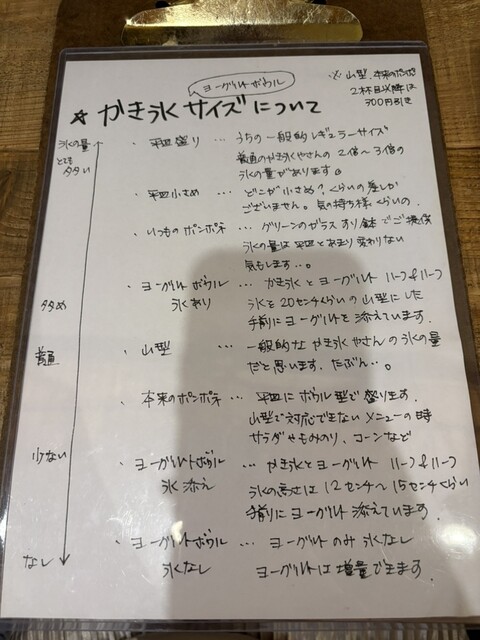 ヨーグルトボウル
※ 山型、本来のポンポネ
2杯目以降は
300円引き
☆ かき氷サイズについて
氷の量
とても
多い
・ 平皿盛り … うちの一般的レギュラーサイズ
普通のかき氷やさんの2倍〜3倍の
氷の量があります。
・ 平皿小さめ … どこが小さめ?くらいの差しか
ございません。気の持ち様くらいの。
・ いつものポンポネ … グリーンのガラス すり鉢でご提供
氷の量は平皿とあまり変わりない
気もします…。
・ ヨーグルトボウル … かき氷とヨーグルト ハーフ&ハーフ
氷あり 氷を20センチくらいの山型にした
手前にヨーグルトを添えています。
多め
・ 山型 … 一般的なかき氷やさんの氷の量
普通
だと思います。たぶん…。
・ 本来のポンポネ … 平皿にボウル型で盛ります。
山型で対応できないメニューの時
サラダやものみり、コーンなど
少ない
・ ヨーグルトボウル … かき氷とヨーグルト ハーフ&ハーフ
氷添え 氷の高さは12センチ〜15センチくらい
手前にヨーグルト添えています。
・ ヨーグルトボウル … ヨーグルトのみ 氷なし
なし
氷なし ヨーグルトは増量できます。